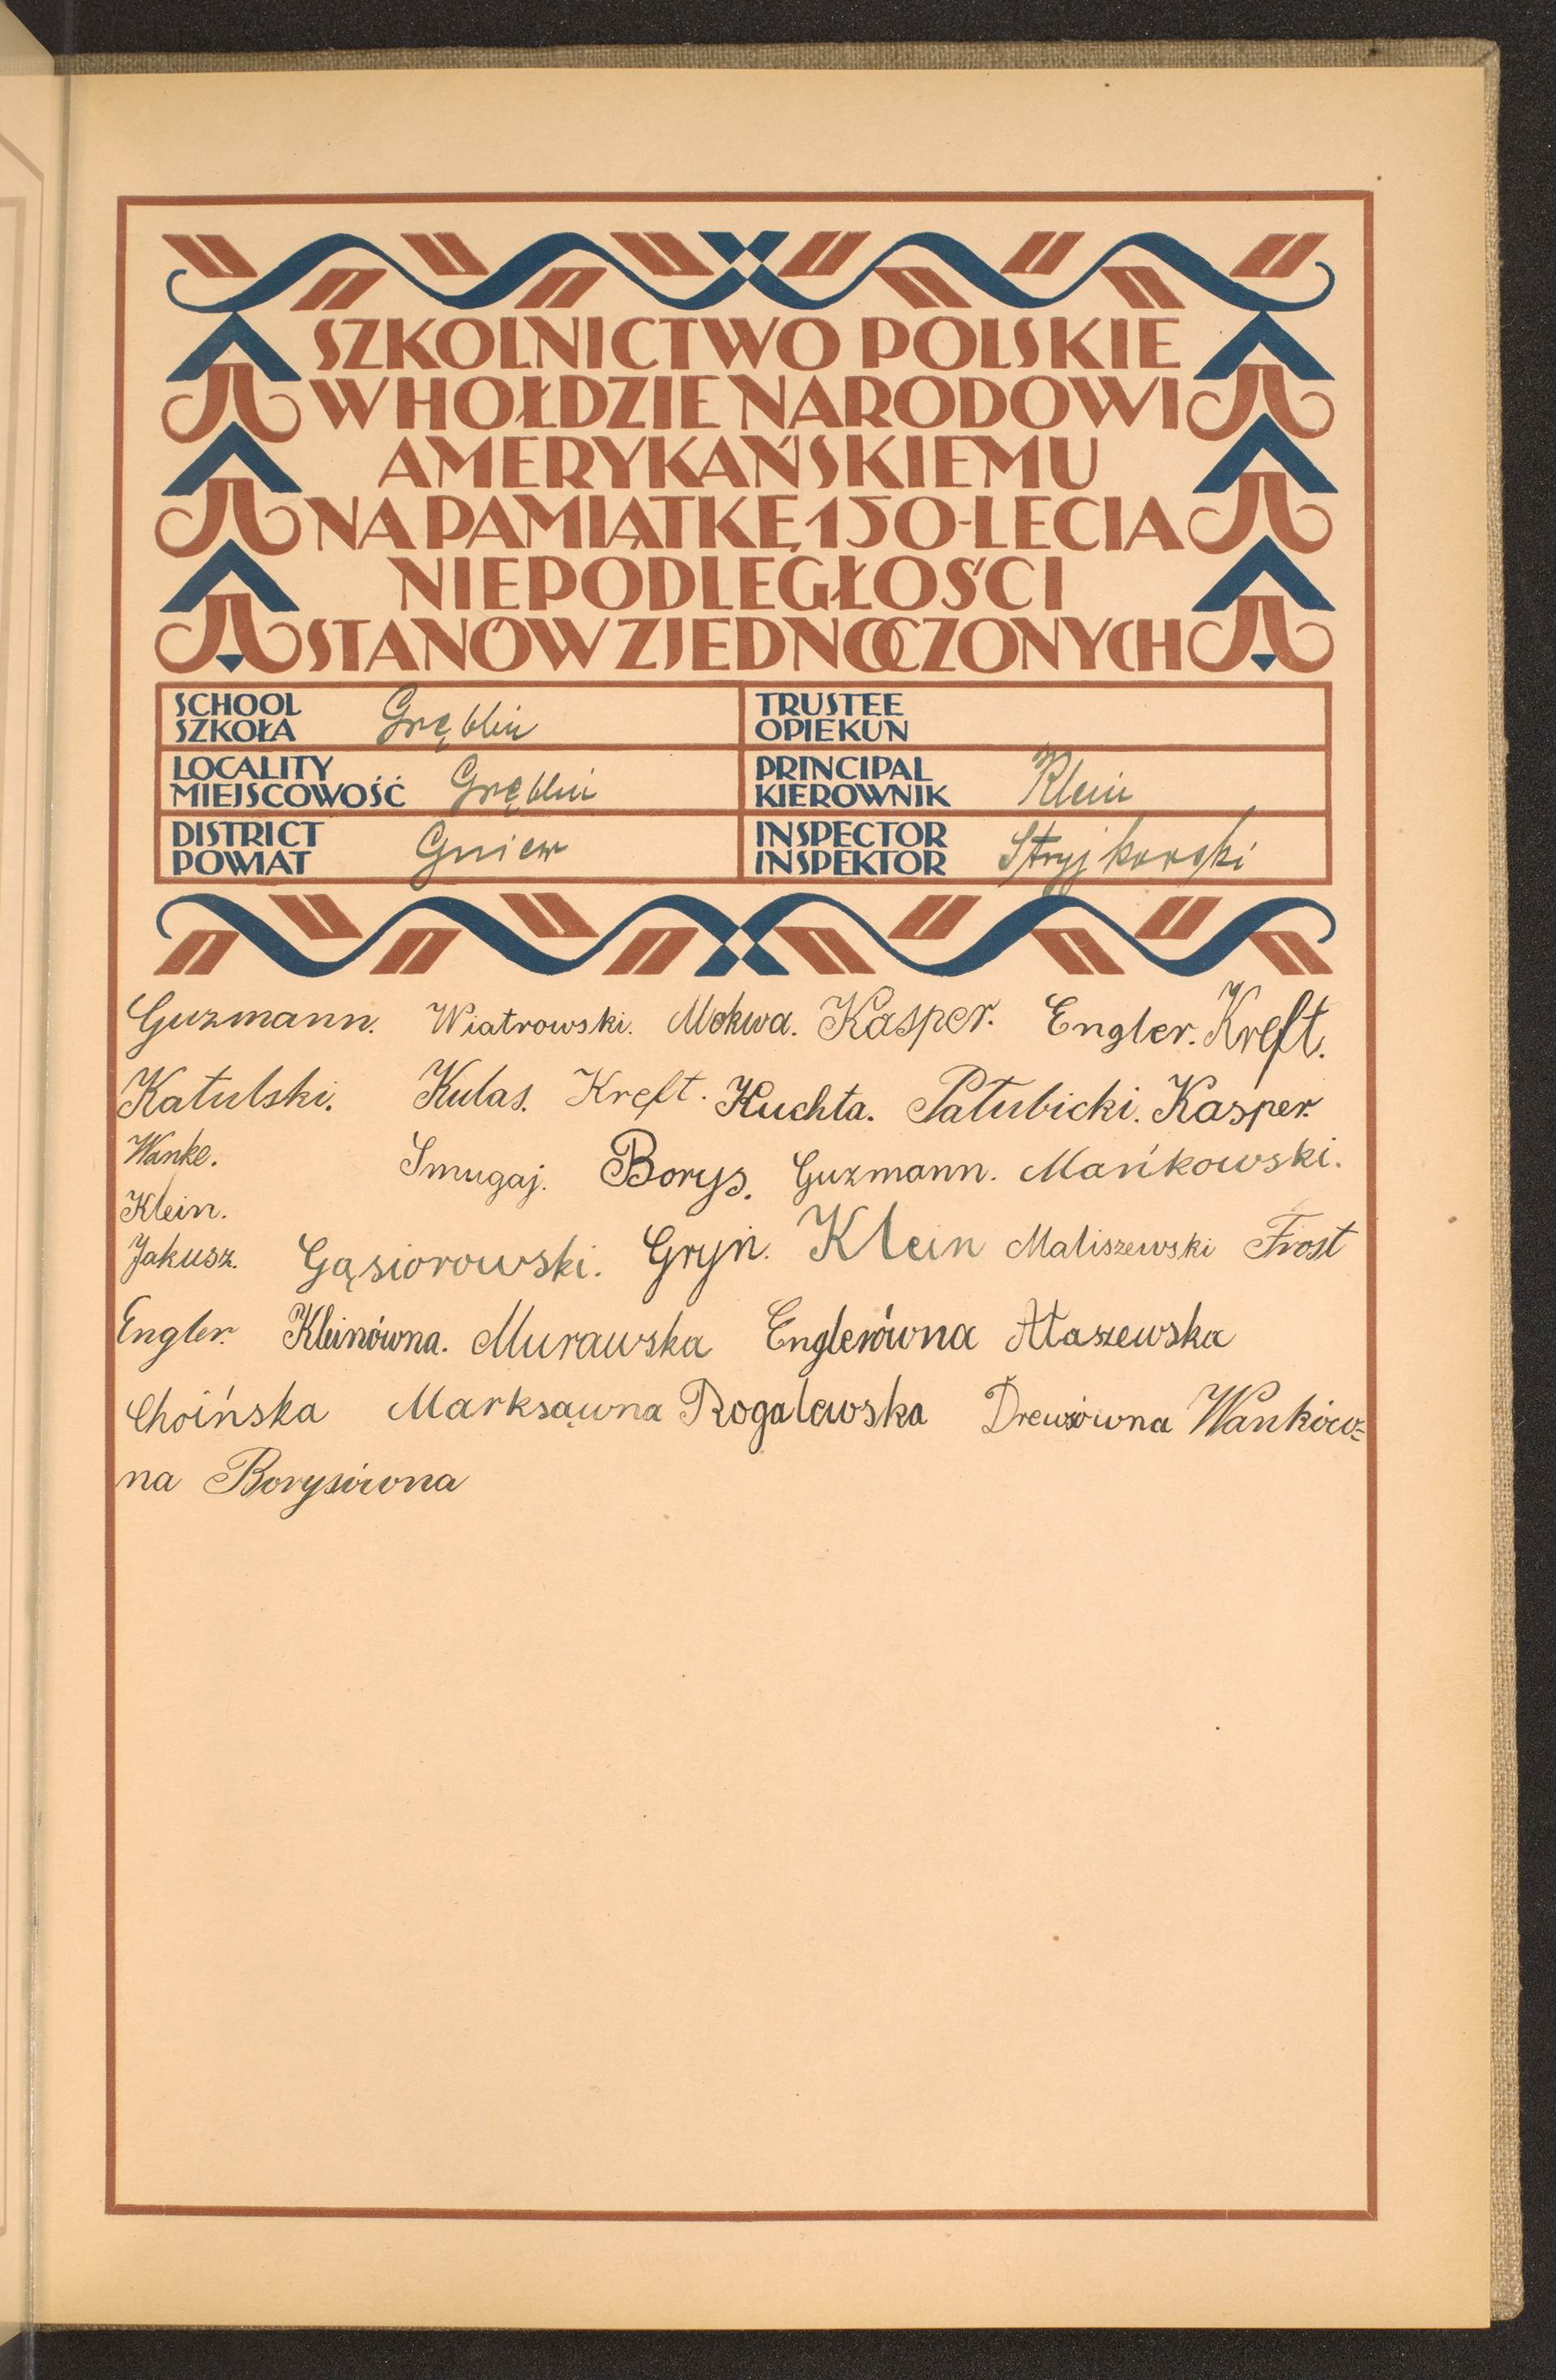 SZKOLNICTWO POLSKIE
W HOŁDZIE NARODOWI
AMERYKAŃSKIEMU
NA PAMIĄTKĘ 150-LECIA
NIEPODLEGŁOŚCI
STANÓW ZJEDNOCZONYCH
SCHOOL
SZKOŁA Gręblin
TRUSTEE
OPIEKUN
LOCALITY
MIEJSCOWOŚĆ Gręblin
PRINCIPAL
KIEROWNIK Klein
DISTRICT
POWIAT Gniew
INSPECTOR
INSPEKTOR Stryjkowski
Guzmann. Wiatrowski. Mokwa. Kasper. Engler. Kreft.
Katulski. Kulas. Kreft. Kuchta. Pałubicki. Kasper.
Wanke. Smugaj. Borys. Guzmann. Mańkowski.
Klein.
Jakusz. Gąsiorowski. Gryń. Klein Maliszewski Frost
Engler. Kleinówna. Murawska Englerówna Ałaszewska
Choińska Marksówna Rogalewska Drewsówna Wanków=
na Borysówna